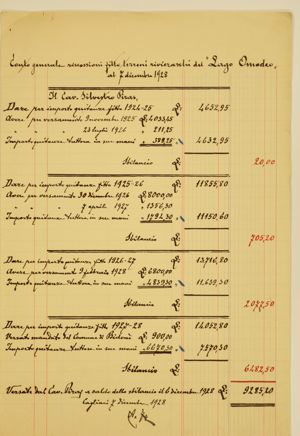 Conto generale riscossioni fitto terreni rivieraschi del "Lago Omodeo,
al 7 dicembre 1928
Il Cav. Silvestro Piras,
Dare per importo quitanze fitto 1924-25 £. 4652,95
Avere per versamento 9 novembre 1925 £. 4033,45
" " " 23 luglio 1926 " 211,25
Importo quitanze tuttora in sue mani " 388,25 £. 4632,95
Sbilancio £. 20,00
Dare per importo quitanze fitto 1925-26 £. 11855,80
Avere per versamento 30 dicembre 1926 £. 8000,00
" " " 7 aprile 1927 " 1356,30
Importo quitanze tuttora in sue mani " 1794,30 £. 11150,60
Sbilancio £. 705,20
Dare per importo quitanze fitto 1926-27 £. 13716,80
Avere per versamento 9 febbraio 1928 £. 6800,00
Importo quitanze tuttora in sue mani " 4839,30 £. 11639,30
Sbilancio £. 2077,50
Dare per importo quitanze fitto 1927-28 £. 14052,80
Versato mandato del Comune di Bidonì £. 900,00
Importo quitanze tuttora in sue mani " 6670,30 £. 7570,30
Sbilancio £. 6482,50
Versate dal Cav. Piras a saldo dello sbilancio il 6 dicembre 1928 £. 9285,20
Cagliari 7 dicembre 1928